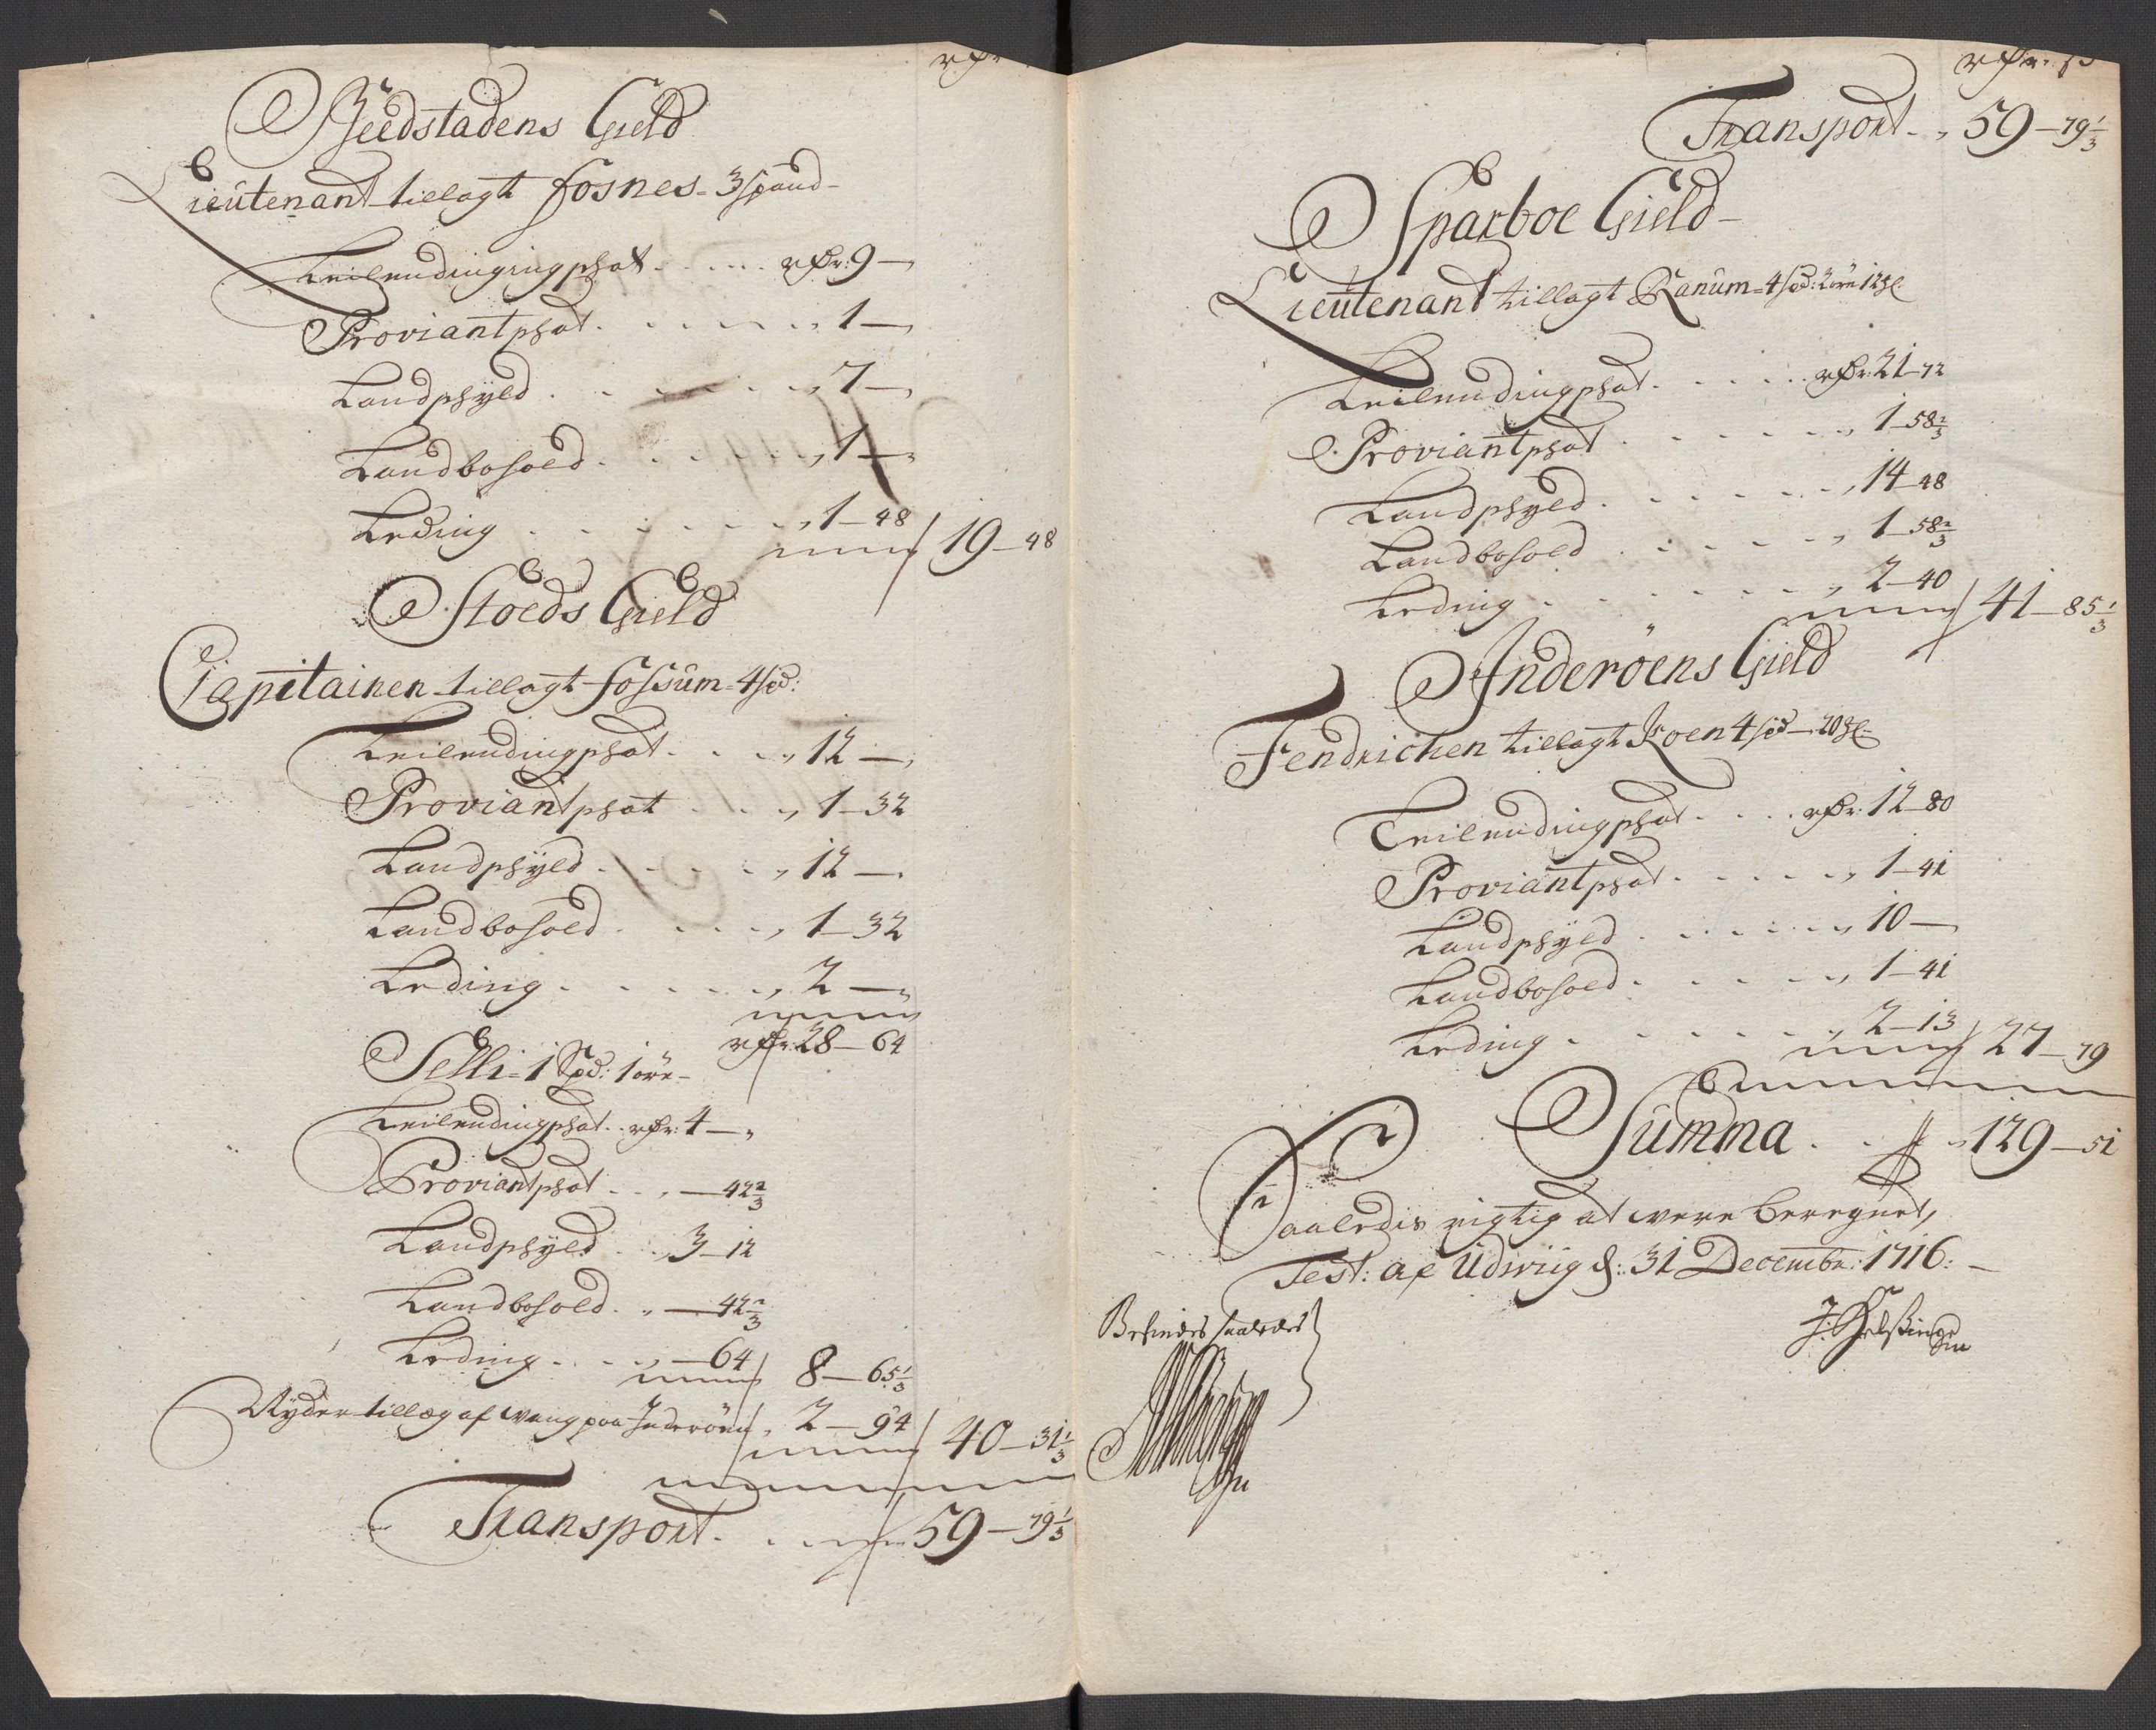 rdr
Beedstadens Gield
Lieutenant tillagt fosnes - 3 spand -
Leilendingingschat . . . . . rdr: 9 -
Proviantschat . . . . . . 1 -
Landschyld . . . . . . 7 -
Landbohold . . . . . . 1 -
Leding . . . . . . 1 - 48 / 19 - 48
Stoeds Gield
Capitainen tillagt fossum - 4 spd:
Leilendingschat . . . . 12 -
Proviantschat . . . , 1 - 32
Landschyld . . . . . , 12 -
Landbohold . . . . , 1 - 32
Leding . . . . . , 2 -
rdr: 28 - 64
Selli - 1 Spd: 1 öre -
Leilendingschat . . rdr: 4 -
Proviantschat . . , - 42 2/3
Landschyld . . , 3 - 12
Landbohold . , - 42 2/3
Leding . . . , - 64 / 8 - 65 1/3
Nyder tillæg af Wang paa Inderöen , 2 - 94 / 40 - 31 1/3
Transport . . . . 59 - 79 1/3
rdr: s
Transport . , 59 - 79 1/3
Sparboe Gield -
Lieutenant tillagt Ranum - 4 spd: 2 öre 12 Ml
Leilendingschat . . . . . rdr: 21 - 72
Proviantschat . . . . . . , 1 - 58 2/3
Landschyld . . . . . . , 14 - 48
Landbohold . . . . . , 1 - 58 2/3
Leding . . . . . . , 2 - 40 / 41 - 85 1/3
Inderöens Gield
Fendrichen tillagt Roen 4 spd - 20 Ml -
Leilendingschat . . . . rdr: 12 - 80
Proviantschat . . . . . , 1 - 41
Landschyld . . . . . , 10 -
Landbohold . . . . . , 1 - 41
Leding . . . . . . , 2 - 13 / 27 - 79
Summa . . , 129 - 51
Saaledis rigtig at were beregnet,
Test: af Udwiig d: 31 Decembr: 1716: -
Befindes saaledes